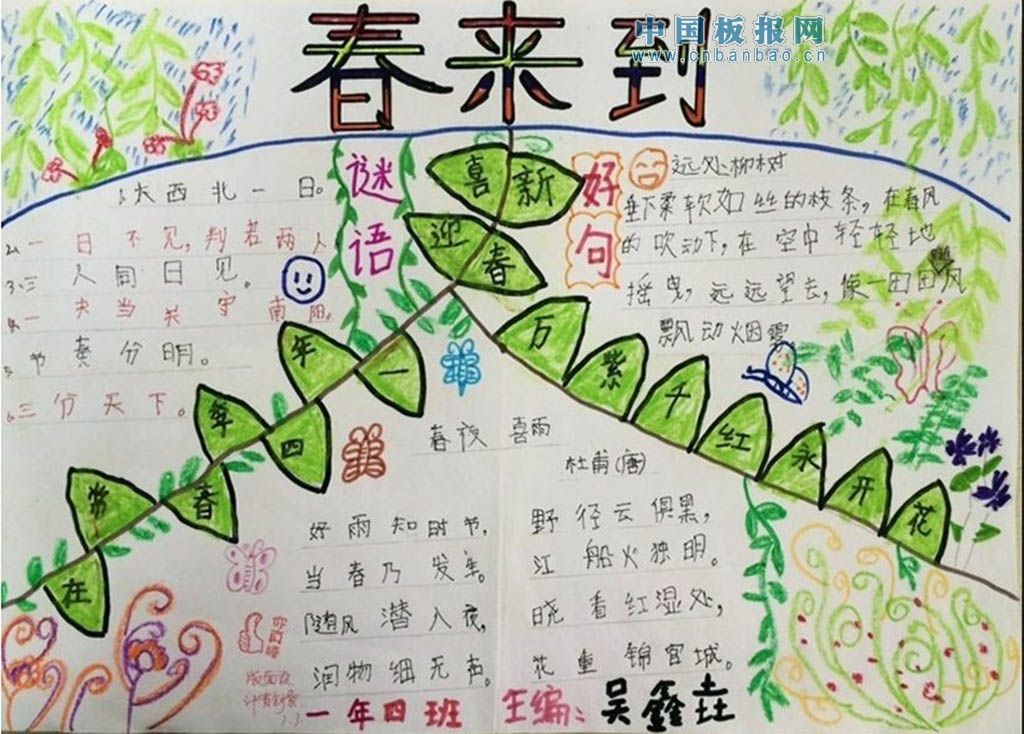 春来到
中国板报网
www.cnbanbao.cn
谜语
西北一日。
2、一日不见,判若两人。
3、三人同日见。
4、一夫当关守南阳。
5、节奏分明。
6、三分天下。
喜迎新春
一年四年春常在
万紫千红永开花
好句
远处柳树
垂下柔软如丝的枝条,在春风
的吹动下,在空中轻轻地
摇曳,远远望去,像一团团风
飘动烟雾
春夜喜雨
杜甫(唐)
好雨知时节,
当春乃发生。
随风潜入夜,
润物细无声。
野径云俱黑,
江船火独明。
晓看红湿处,
花重锦官城。
你真棒
版面设
3.3
一年四班
主编:吴鑫垚